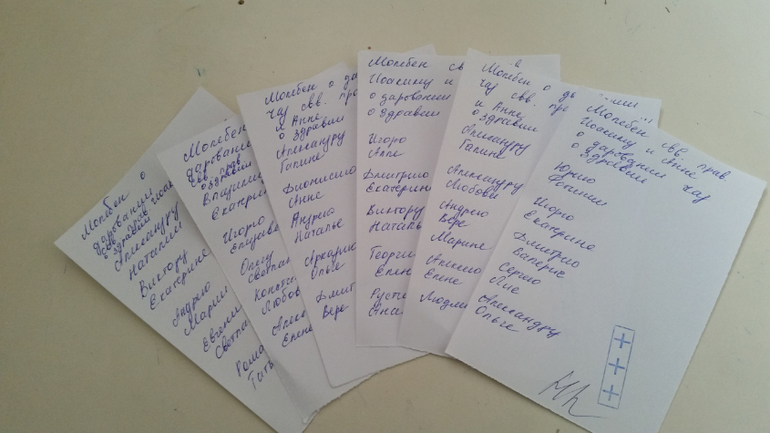 Молебен о
даровании
Александру
Наталии
Виктору
Екатерине
Андрею
Марии
Евгени
Светла
Рома
Молебен
даровании
о здравии
Владими
Екатери
Игорю
Елизаве
Олегу
Светла
Конста
Любов
Алекс
Елене
Молебен о да
чад свв. пра
и Анне
о здравии
Александру
Галине
Дионисию
Анне
Андрею
Наталье
Аркадию
Ольге
Дмит
Вере
Молебен св
Иоакиму и
о даровании
о здравии
Игорю
Анне
Дмитрию
Екатерине
Виктору
Наталь
Георги
Елене
Русте
Молебен о да
чад свв. пр
и Анне
о здравии
Александру
Галине
Александру
Любови
Андрею
Вере
Марине
Алексию
Елене
Людми
Молебен свв. прав.
Иоакиму и Анне
о даровании чад
о здравии
Юрию
Фотинии
Игорю
Екатерине
Димитрию
Валерие
Сергию
Лие
Александру
Ольге